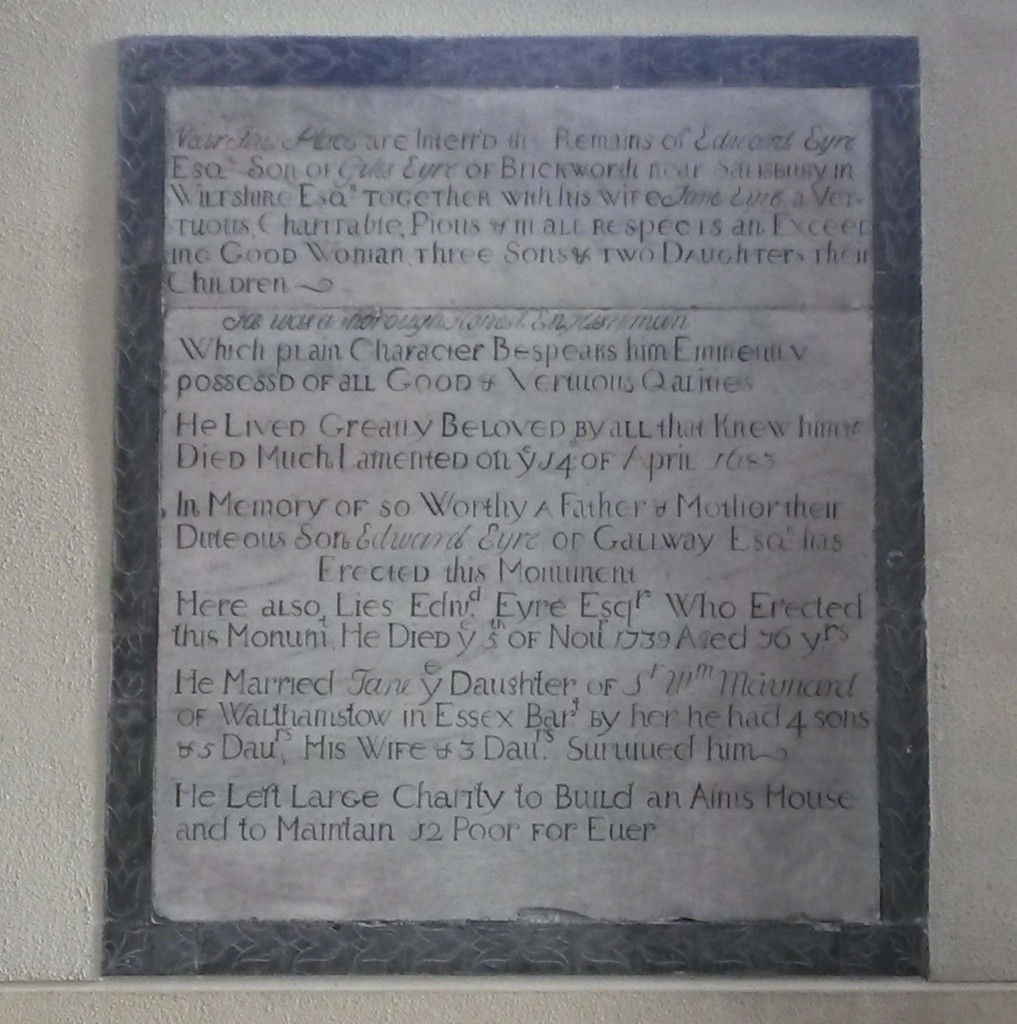 Near This Place are Interr'd the Remains of Edward Eyre
Esqr. Son of Giles Eyre of Brickworth near Salisbury in
Wiltshire Esqr. together with his wife Jane Eyre, a Ver-
tuous, Charitable, Pious & in all Respects an Exceed
ing Good Woman, Three Sons & two Daughters their
Children
He was a thorough Honest Englishman
Which plain Character Bespeaks him Eminently
possessd of all Good & Vertuous Qalities
He Lived Greatly Beloved by all that Knew him &
Died Much Lamented on ye 14 of April
In Memory of so Worthy a Father & Mother their
Duteous Son Edward Eyre of Gallway Esqr. has
Erected this Monument
Here also, Lies Edwd. Eyre Esqr Who Erected
this Monumt, He Died ye 5th of Nour 1739 Aged 76 yrs
He Married Jane ye Daughter of Sr Wm Maynard
of Walthamstow in Essex Bart by her he had 4 sons
& 5 Daurs, His Wife & 3 Daurs. Suruiued him
He Left Large Charity to Build an Alms House
and to Maintain 12 Poor for Euer